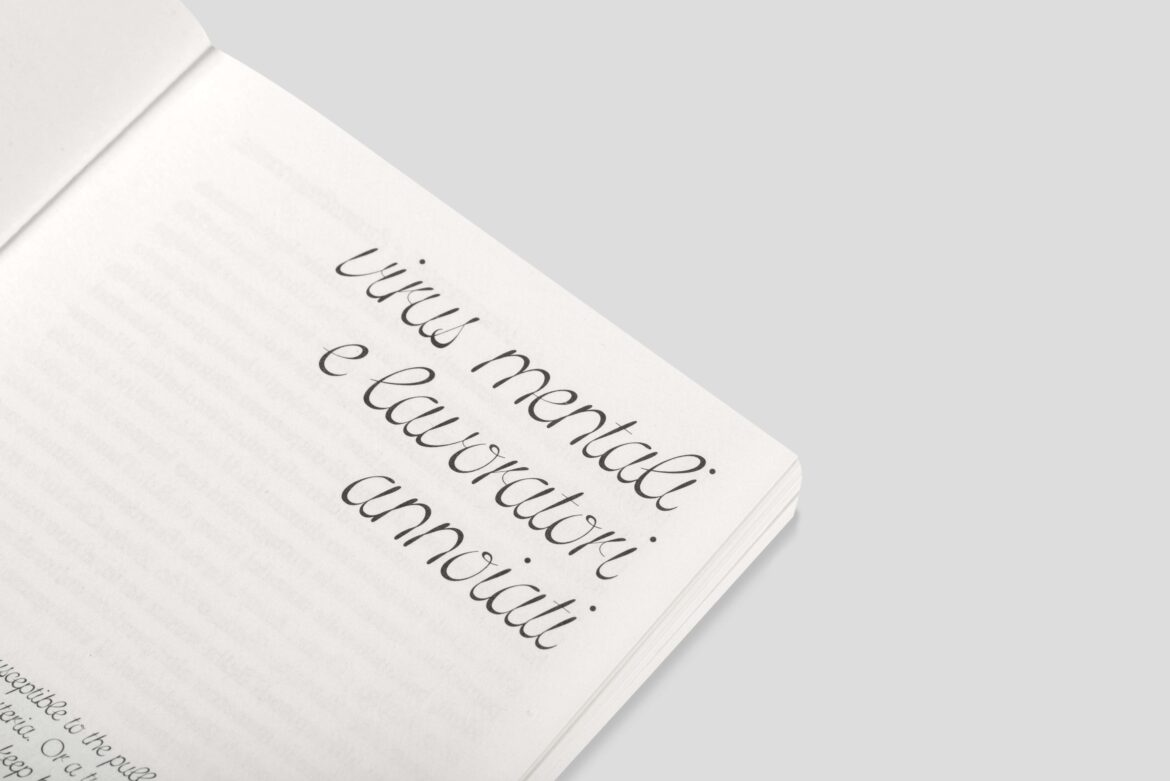 virus mentali
e lavoratori
annoiati
susceptible to the pull
Or a
keep